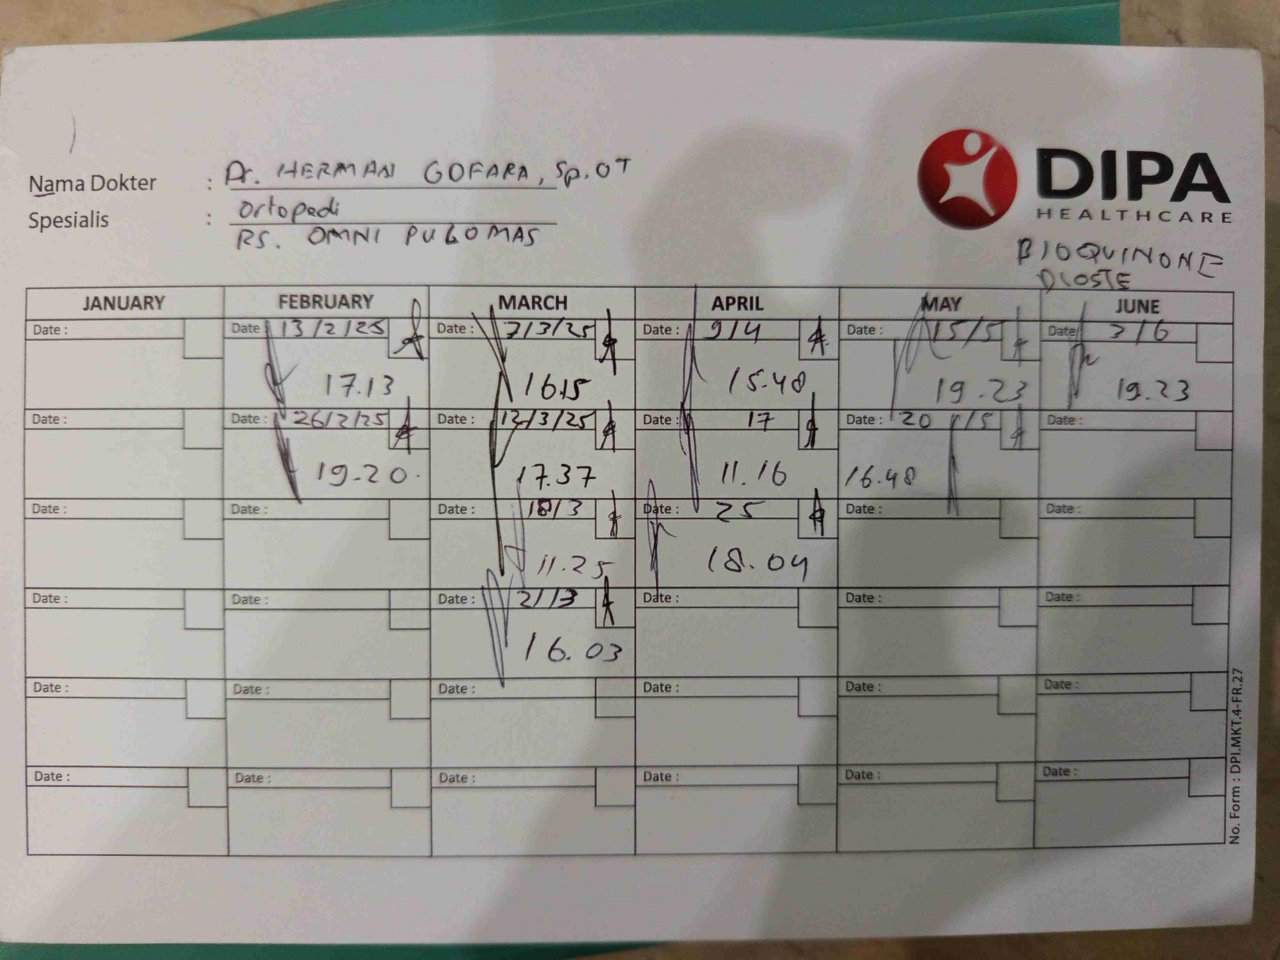 Nama Dokter : Dr. HERMAN GOFARA, Sp.OT
Spesialis : Ortopedi
RS. OMNI PULOMAS
DIPA
HEALTHCARE
BIOQUINONE
OIOSTE
JANUARY FEBRUARY MARCH APRIL MAY JUNE
Date : Date : 13/2/25 Date : 7/3/25 Date : 9/4 Date : 15/5 Date : 3/6
17.13 16.15 15.48 19.23 19.23
Date : Date : 26/2/25 Date : 12/3/25 Date : 17 Date : 20/5 Date :
19.20. 17.37 11.16 16.48
Date : Date : Date : 18/3 Date : 25 Date : Date :
11.25 18.04
Date : Date : Date : 21/3 Date : Date : Date :
16.03
Date : Date : Date : Date : Date : Date :
Date : Date : Date : Date : Date : Date :
No. Form : DPI.MKT.4-FR.27